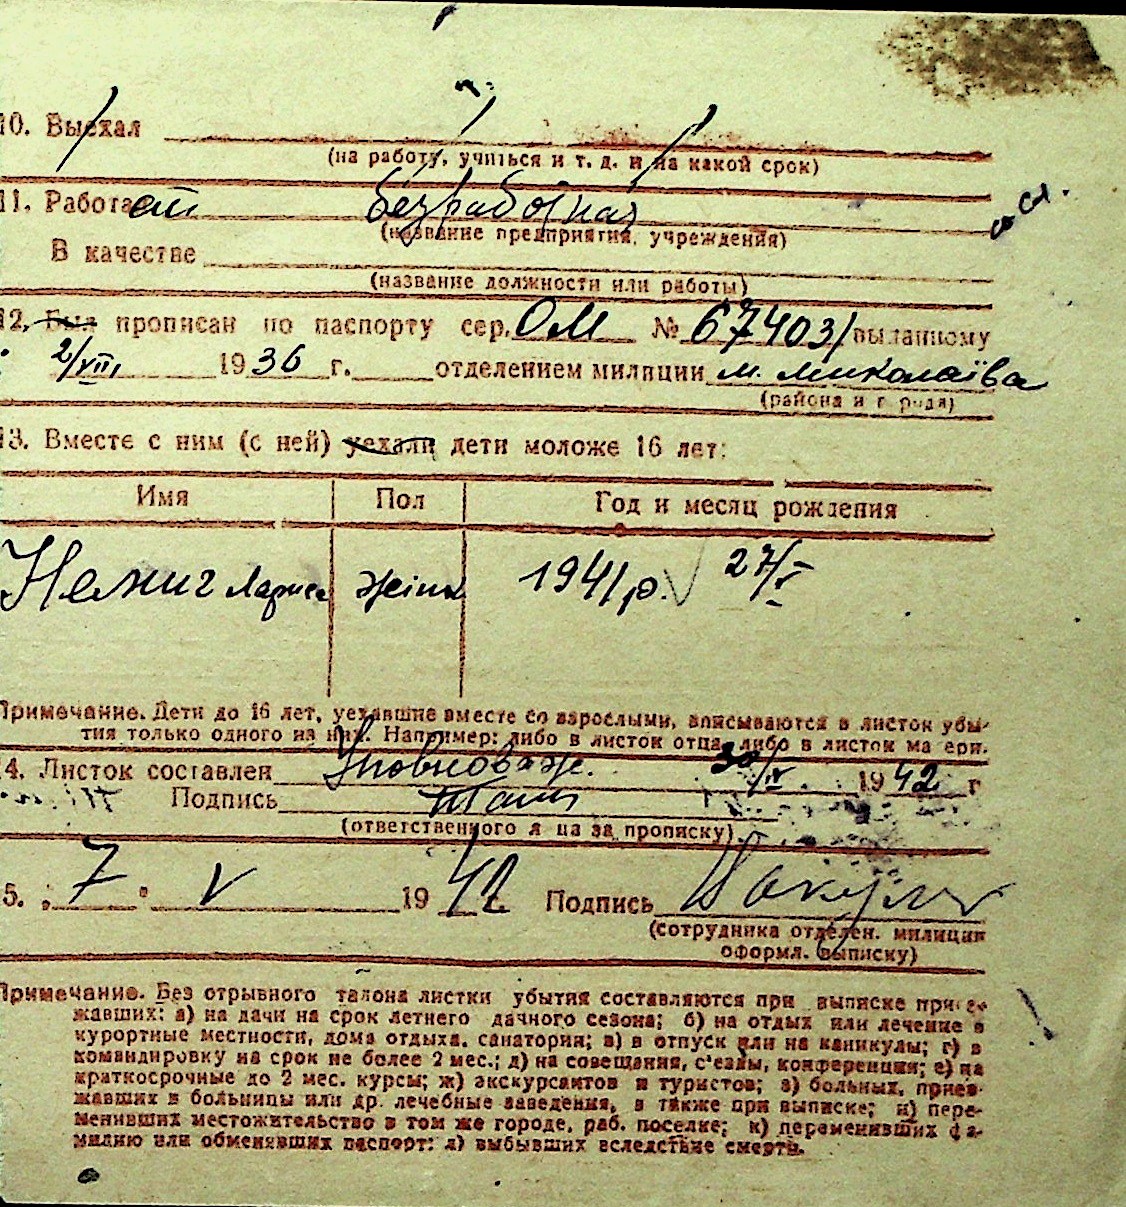 10. Выехал
(на работу, учиться и т. д. и на какой срок)
11. Работает безработная
(название предприятия, учреждения)
В качестве
(название должности или работы)
12. Был прописан по паспорту сер. ОМ № 674031 выданному
2/VIII 1936 г. отделением милиции м. Миколаїва
(района и города)
13. Вместе с ним (с ней) уехали дети моложе 16 лет:
Имя Пол Год и месяц рождения
Лариса жін 1941 р. 27/V
Примечание. Дети до 16 лет, уехавшие вместе со взрослыми, вписываются в листок убы-
тия только одного из них. Например: либо в листок отца, либо в листок матери.
14. Листок составлен Уповноваж. 30/IV. 1942 г
Подпись
(ответственного лица за прописку)
15. „7" V 1942 Подпись
(сотрудника отделен. милиции
оформл. выписку)
Примечание. Без отрывного талона листки убытия составляются при выписке приез-
жавших: а) на дачи на срок летнего дачного сезона; б) на отдых или лечение в
курортные местности, дома отдыха, санатории; в) в отпуск или на каникулы; г) в
командировку на срок не более 2 мес.; д) на совещания, с'езды, конференции; е) на
краткосрочные до 2 мес. курсы; ж) экскурсантов и туристов; з) больных, приез-
жавших в больницы или др. лечебные заведения, а также при выписке; и) пере-
менивших местожительство в том же городе, раб. поселке; к) переменивших фа-
милию или обменявших паспорт: л) выбывших вследствие смерти.